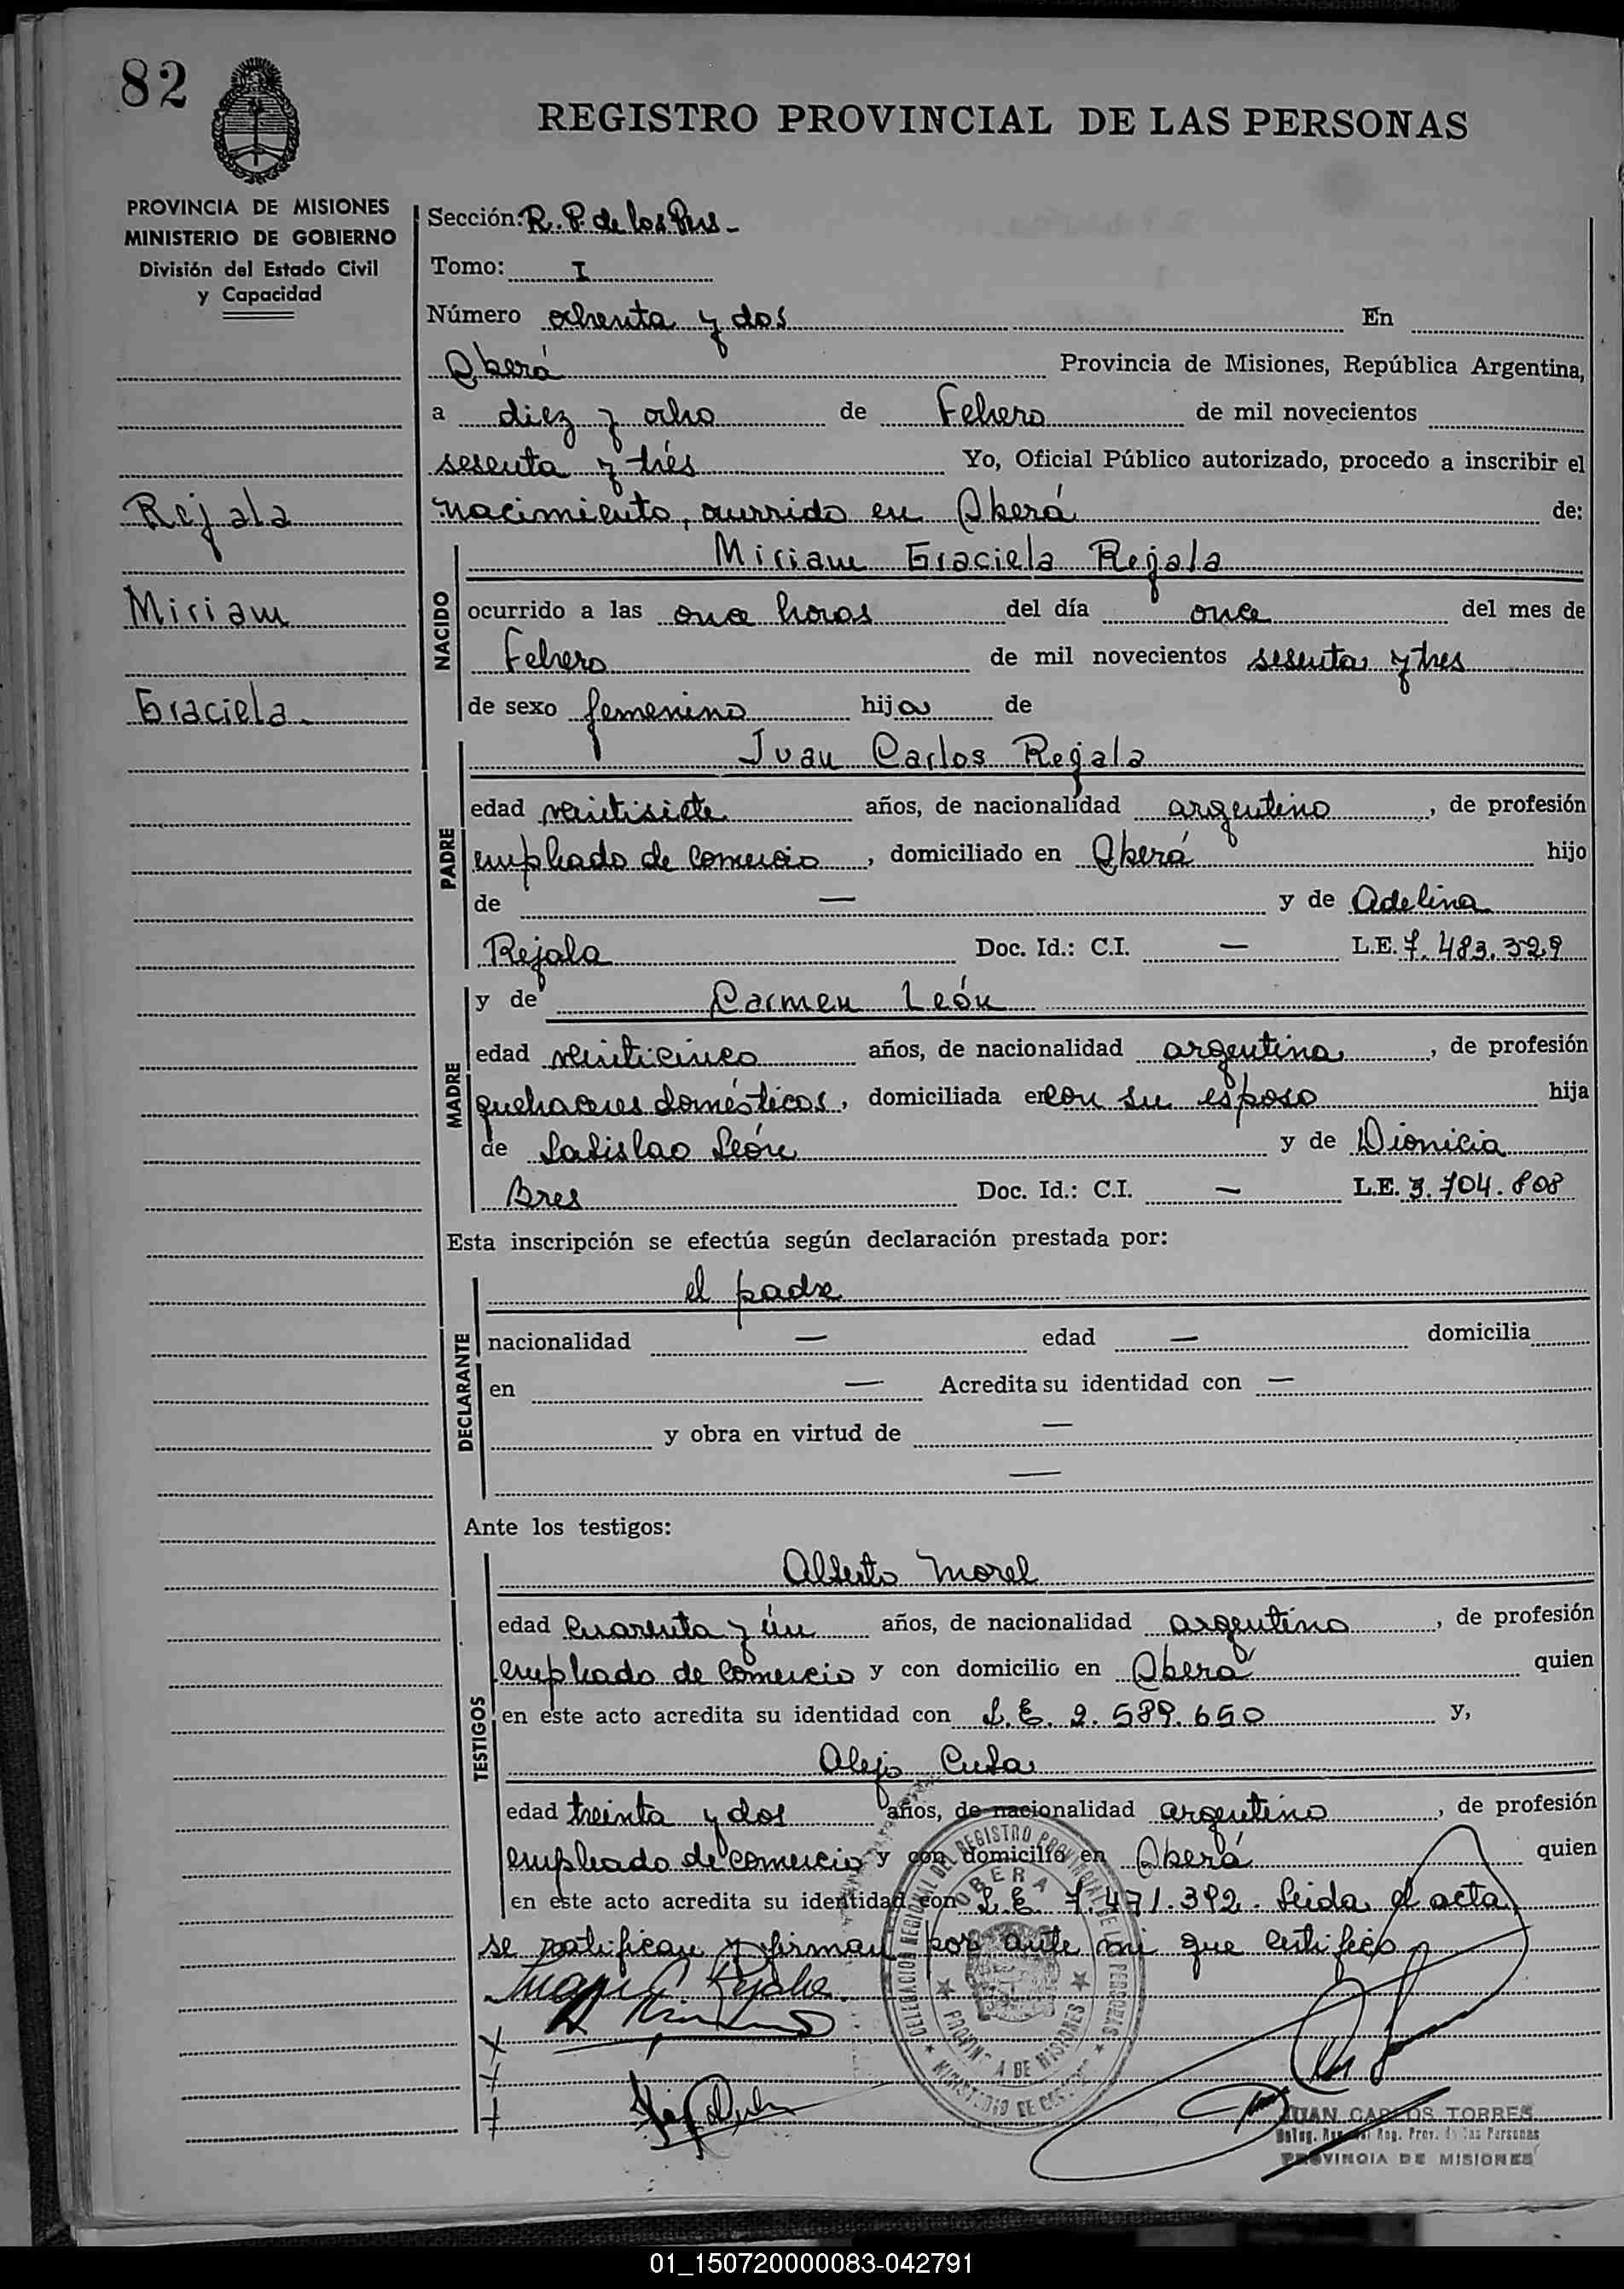 82
REGISTRO PROVINCIAL DE LAS PERSONAS
PROVINCIA DE MISIONES
MINISTERIO DE GOBIERNO
División del Estado Civil
y Capacidad
Rejala
Miriam
Graciela.
Sección: R. P. de las Pers -
Tomo: I
Número ochenta y dos En
Oberá Provincia de Misiones, República Argentina,
a diez y ocho de Febrero de mil novecientos
sesenta y trés Yo, Oficial Público autorizado, procedo a inscribir el
nacimiento, ocurrido en Oberá de:
NACIDO
Miriam Graciela Rejala
ocurrido a las once horas del día once del mes de
Febrero de mil novecientos sesenta y tres
de sexo femenino hija de
PADRE
Juan Carlos Rejala
edad veintisiete años, de nacionalidad argentino, de profesión
empleado de comercio, domiciliado en Oberá hijo
de — y de Adelina
Rejala Doc. Id.: C.I. — L.E. 7.483.329
MADRE
y de Carmen León
edad veinticinco años, de nacionalidad argentina, de profesión
quehaceres domésticos, domiciliada en con su esposo hija
de Ladislao León y de Dionicia
Bres Doc. Id.: C.I. — L.E. 3.704.808
Esta inscripción se efectúa según declaración prestada por:
DECLARANTE
el padre
nacionalidad — edad — domicilia
en — Acredita su identidad con —
y obra en virtud de —
—
Ante los testigos:
TESTIGOS
Alberto Morel
edad cuarenta y ún años, de nacionalidad argentino, de profesión
empleado de comercio y con domicilio en Oberá quien
en este acto acredita su identidad con L.E. 2.589.650 y,
Alejo
edad treinta y dos años, de nacionalidad argentino, de profesión
empleado de comercio y con domicilio en Oberá quien
en este acto acredita su identidad con L.E. 7.471.392. Leida el acta,
se ratifican y firman por ante mi que certifico
Juan C. Rejala
DELEGACION REGIONAL DEL REGISTRO PROVINCIAL DE LAS PERSONAS
OBERA
PROVINCIA DE MISIONES
MINISTERIO DE GOBIERNO
JUAN CARLOS TORRES
Deleg. Reg. del Reg. Prov. de las Personas
PROVINCIA DE MISIONES
01_150720000083-042791